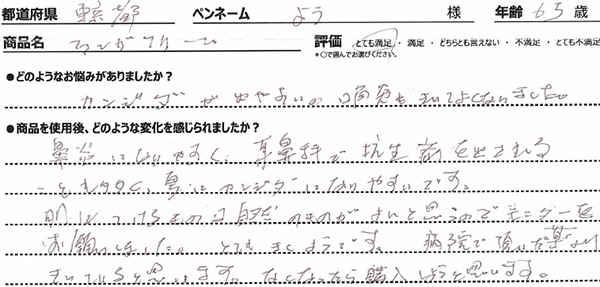 都道府県 東京都 ペンネーム よう 様 年齢 65 歳
商品名 ファンガクリーム 評価 とても満足 ・ 満足 ・ どちらとも言えない ・ 不満足 ・ とても不満足
*○で囲んでお選びください。
●どのようなお悩みがありましたか？
カンジダが出やすいの 口角炎も
●商品を使用後、どのような変化を感じられましたか？
鼻炎になりやすく、耳鼻科で抗生剤を出される
ことも多く、夏はカンジダになりやすいです。
肌につけるものは自然のものがよいと思うのでモニターを
お願いしました。とてもよさそうです。病院で頂いた薬より
きいていると思います。なくなったら購入しようと思います。